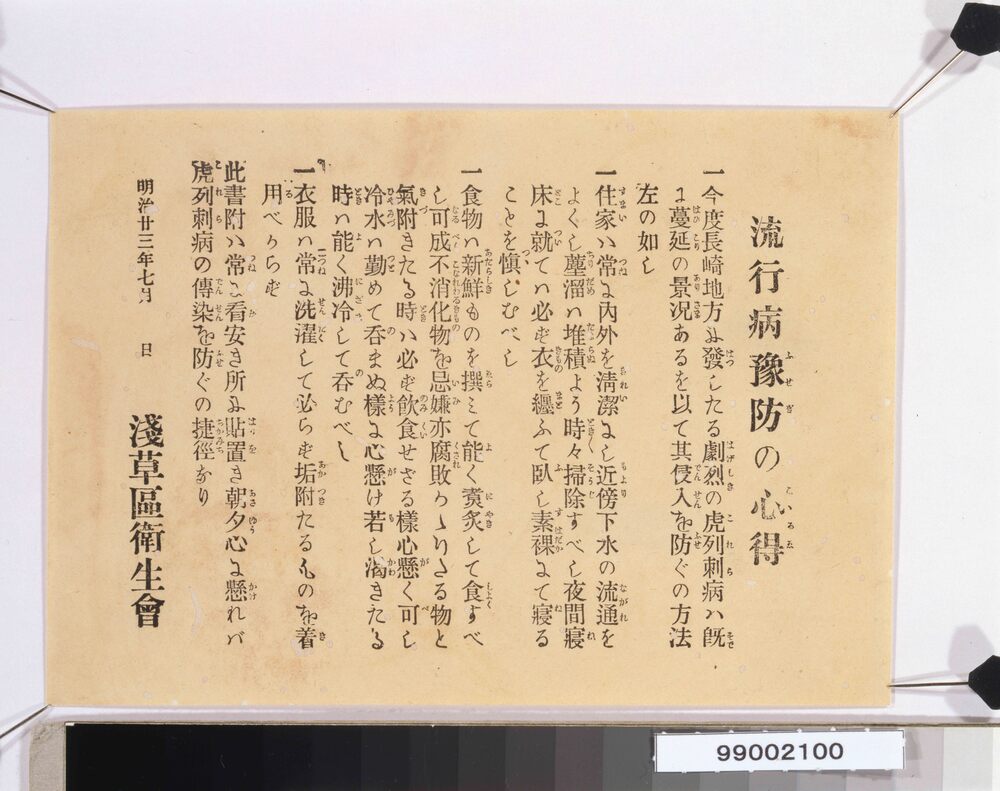 流行病豫防の心得
一今度長崎地方に發したる劇烈の虎列刺病ハ既
に蔓延の景况あるを以て其侵入を防ぐの方法
左の如し
一住家ハ常に內外を淸潔にし近傍下水の流通を
よくし塵溜ハ堆積よう時々掃除すべし夜間寢
床に就てハ必ず衣を纏ふて臥し素裸にて寢る
ことを愼しむべし
一食物ハ新鮮ものを撰ミて能く煑炙して食すべ
し可成不消化物を忌嫌亦腐敗かゝりたる物と
氣附きたる時ハ必ず飮食せざる樣心懸く可し
冷水ハ勤めて呑まぬ樣に心懸け若し渴きたる
時ハ能く沸冷して呑むべし
一衣服ハ常に洗濯して必らず垢附たるものを着
用べからず
此書附ハ常に看安き所に貼置き朝夕心に懸れバ
虎列刺病の傳染を防ぐの捷徑なり
明治廿三年七月 日
淺草區衛生會
99002100